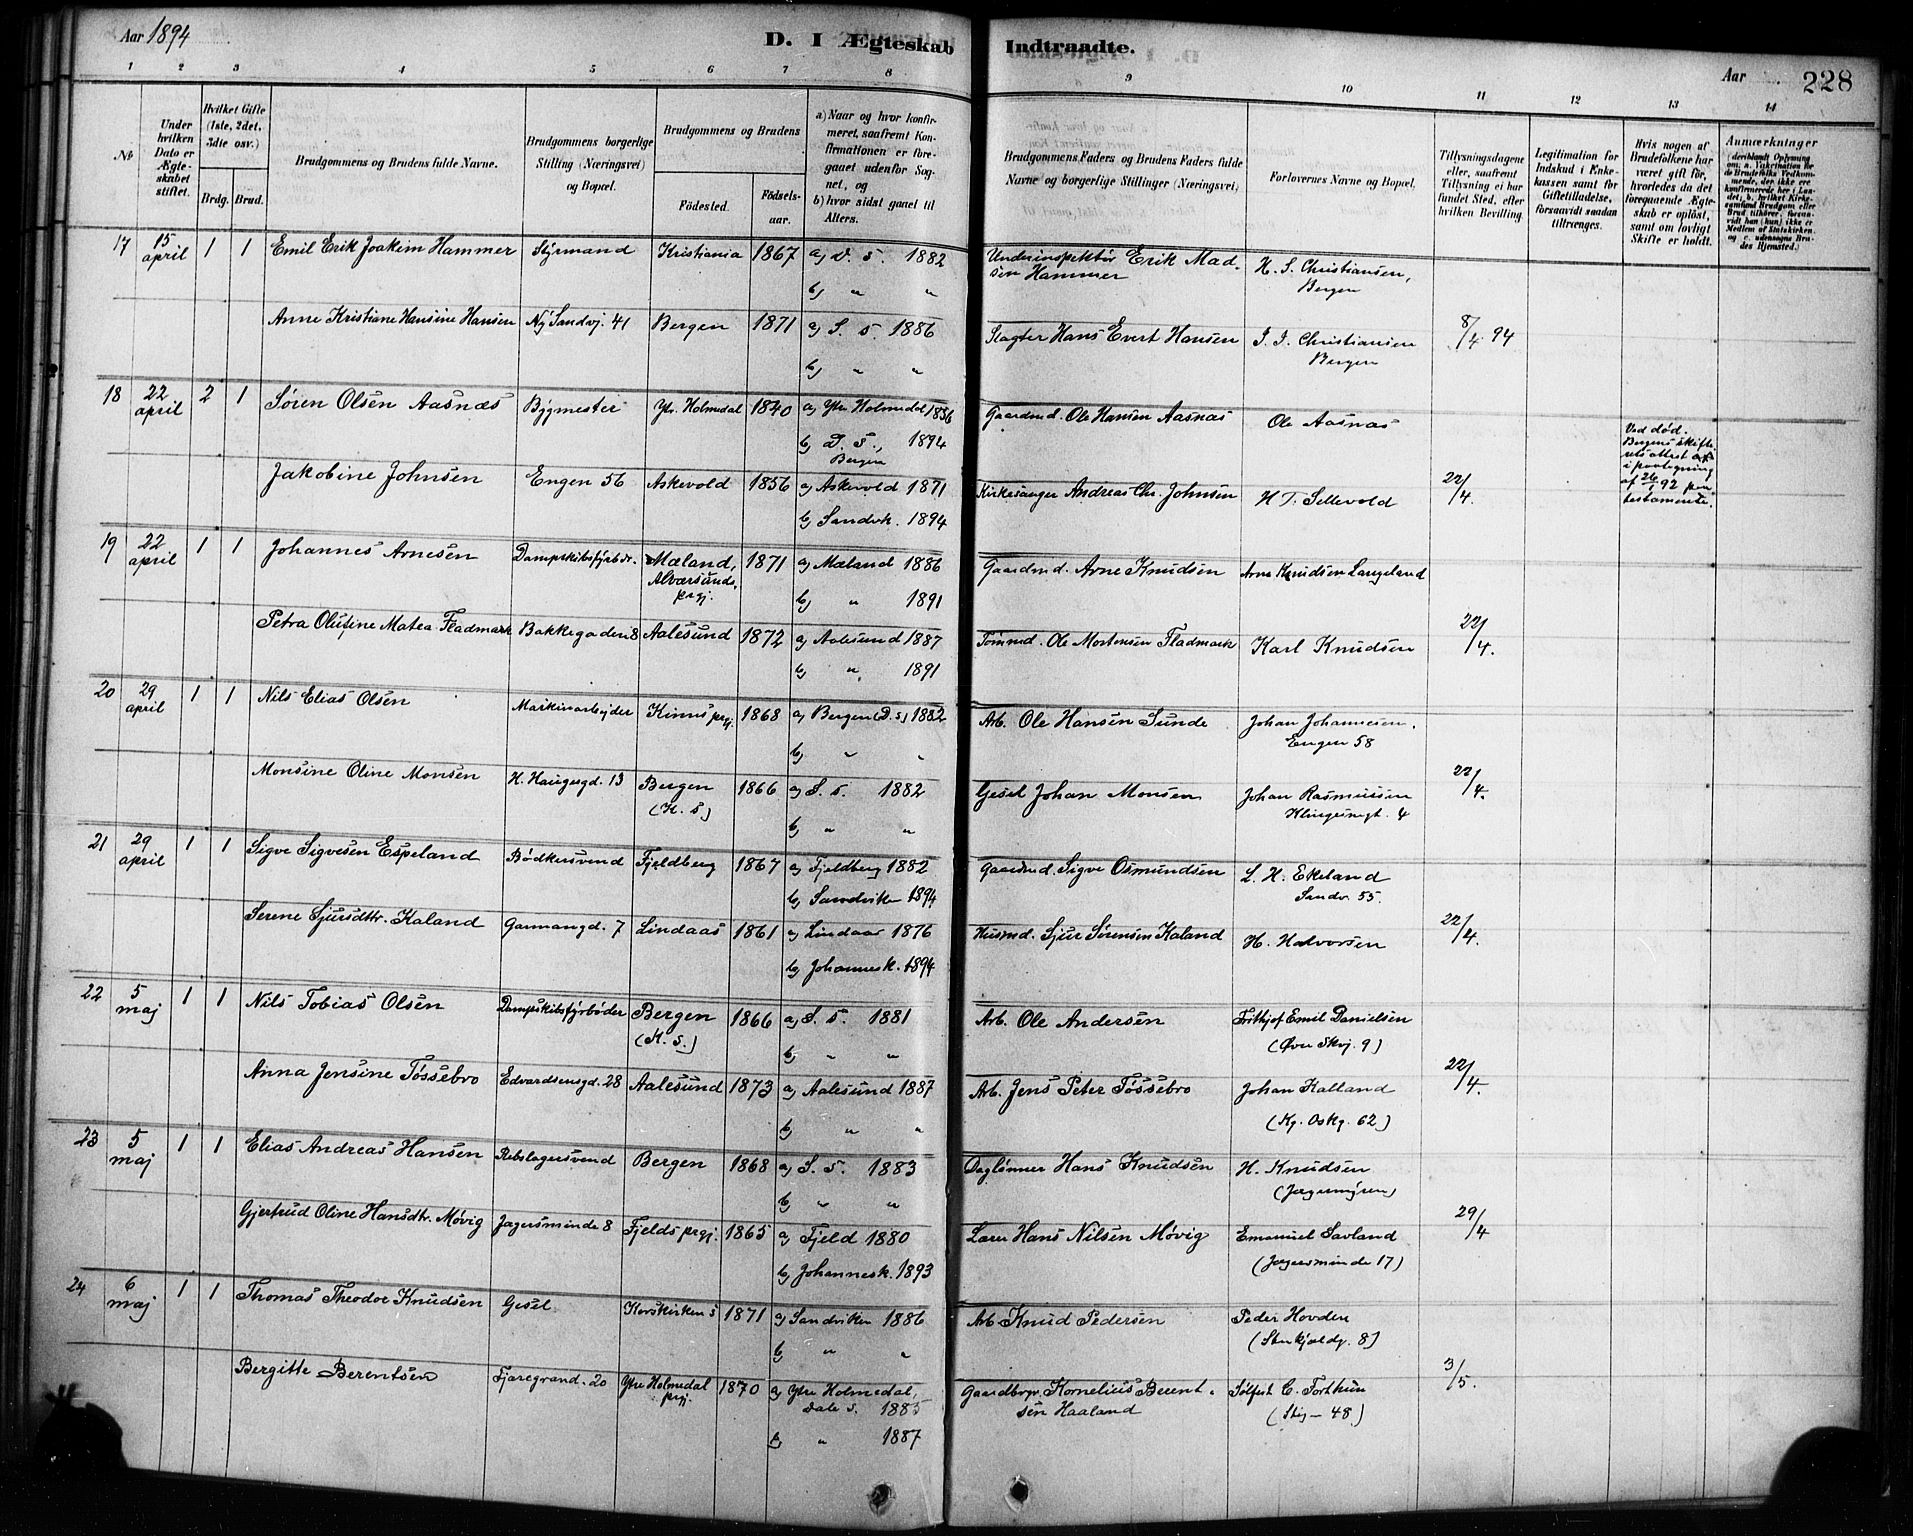 Aar 1894
D. I Ægteskab Indtraadte.
Aar 228
1 2 3 4 5 6 7 8 9 10 11 12 13 14
No
Under hvilken Dato er Ægteskabet stiftet.
Hvilket Gifte (1ste, 2det, 3die osv.)
Brdg. Brud.
Brudgommens og Brudens fulde Navne.
Brudgommens borgerlige Stilling (Næringsvei) og Bopæl.
Brudgommens og Brudens
Fødested. Fødselsaar.
a) Naar og hvor konfirmeret, saafremt Konfirmationen er foregaaet udenfor Sognet, og
b) hvor sidst gaaet til Alters.
Brudgommens Faders og Brudens Faders fulde Navne og borgerlige Stillinger (Næringsvei)
Forlovernes Navne og Bopæl.
Tillysningsdagene eller, saafremt Tillysning ei har fundet Sted, efter hvilken Bevilling.
Legitimation for Indskud i Enkekassen samt for Giftetilladelse, forsaavidt saadan tiltrænges.
Hvis nogen af Brudefolkene har været gift før, hvorledes da det foregaaende Ægteskab er opløst, samt om lovligt Skifte er holdt.
Anmærkninger
17 15 april 1 1 Emil Erik Joakim Hammer Styrmand Kristiania 1867 a) D. s. 1882 Underinspektør Erik Madsen Hammer H. S. Christiansen, Bergen
b) " "
Anne Kristiane Hansine Hansen Ny Sandvj. 41 Bergen 1871 a) S. s. 1886 Slagter Hans Evert Hansen J. J. Christiansen Bergen 8/4 94
b) " "
18 22 april 2 1 Søren Olsen Aasnæs Bygmester Ytr. Holmedal 1840 a) Ytr. Holmedal 1856 Gaardmd. Ole Hansen Aasnæs Ole Aasnæs Ved død. Bergens skifterets attest i paategning af 26/1 92 paa testamente.
b) D. s., Bergen 1894
Jakobine Johnsen Engen 56 Askevold 1856 a) Askevold 1871 Kirkesanger Andreas Chr. Johnsen H. T. Sellevold 22/4.
b) Sandvk. 1894
19 22 april 1 1 Johannes Arnesen Dampskibsfyrbdr. Mæland, Alversunds prgj. 1871 a) Mæland 1886 Gaardmd. Arne Knudsen Arne Knudsen Langeland
b) " 1891
Petra Olufine Matea Fladmark Bakkegaden 8 Aalesund 1872 a) Aalesund 1887 Tømmd. Ole Mortensen Fladmark Karl Knudsen 22/4.
b) " 1891
20 29 april 1 1 Nils Elias Olsen Maskinarbejder Kinns prgj. 1868 a) Bergen (D. s.) 1882 Arb. Ole Hansen Sunde Johan Johannesen. Engen 58
b) " "
Monsine Oline Monsen H. Haugesgd. 13 Bergen (K. s.) 1866 a) S. s. 1882 Gesel Johan Monsen Johan Rasmussen 22/4.
b) " "
21 29 april 1 1 Sigve Sigvesen Espeland Bødkersvend Fjeldberg 1867 a) Fjeldberg 1882 Gaardmd. Sigve Osmundsen L. H. Ekeland Sandv. 55.
b) Sandviken 1894
Serene Sjursdtr. Kaland Garmangd. 7 Lindaas 1861 a) Lindaas 1876 Husmd. Sjur Sørensen Kaland H. Halvorsen 22/4.
b) Johannesk. 1894
22 5 maj 1 1 Nils Tobias Olsen Dampskibsfyrbøder Bergen (K. s.) 1866 a) S. s. 1881 Arb. Ole Andersen Frithjof Emil Danielsen (Øvre Skvj. 9)
b) " "
Anna Jensine Tøssebro Edvardsensgd. 28 Aalesund 1873 a) Aalesund 1887 Arb. Jens Peter Tøssebro Johan Kalland (Kg. Oskg. 62) 22/4.
b) " "
23 5 maj 1 1 Elias Andreas Hansen Rebslagersvend Bergen 1868 a) S. s. 1883 Daglønner Hans Knudsen H. Knudsen (Jægermyren)
b) " "
Gjertrud Oline Hansdtr. Møvig Jægersminde 8 Fjelds prgj. 1865 a) Fjeld 1880 Lærer Hans Nilsen Møvig Emanuel Savland (Jægersminde 17) 29/4
b) Johannesk. 1893
24 6 maj 1 1 Thomas Theodor Knudsen Gesel Korskirken s 1871 a) Sandviken 1886 Arb Knud Pedersen Peder Hovden (Stenkjældg. 8)
b) " "
Bergitte Berentsen Fjæregrand. 20 Ytre Holmedal prgj. 1870 a) Ytre Holmedal, Dale s. 1885 Gaardbrgr. Kornelius Berentsen Haaland Sølfest C. Torthun 3/5.
b) " 1887